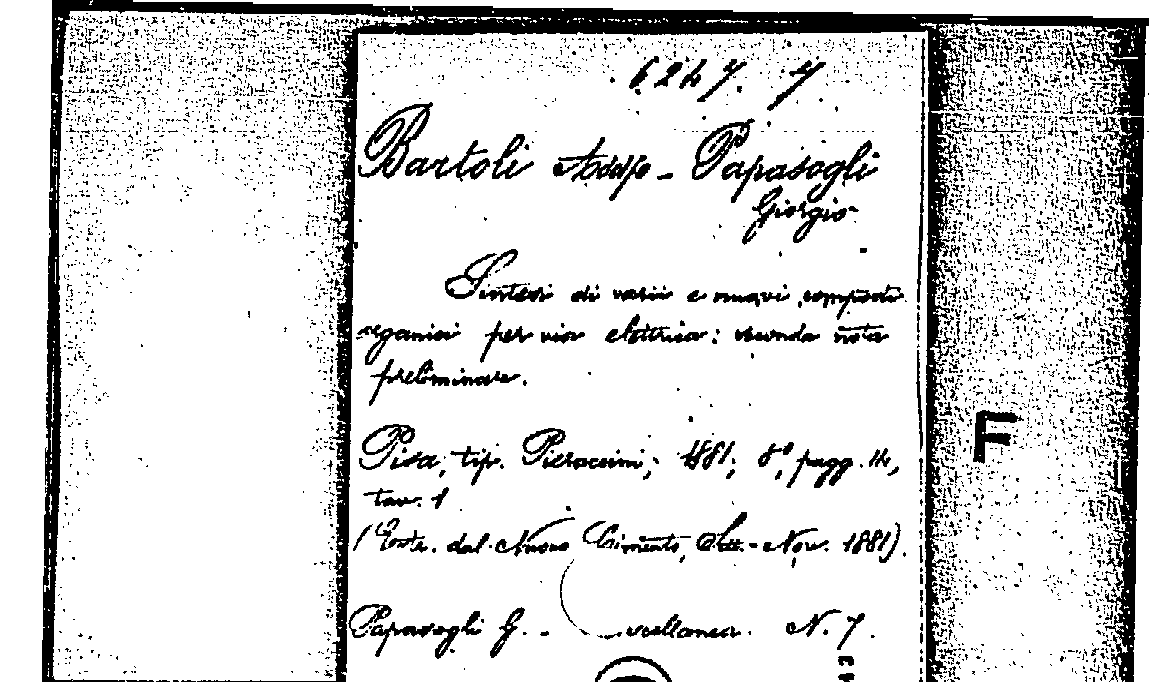 6247. 7.
Bartoli Adolfo - Papasogli
Giorgio
Sintesi di varii e nuovi composti
organici per via elettrica: seconda nota
preliminare.
Pisa, tip. Pieraccini; 1881; 8°, pagg. 14,
tav. 1
(Estr. dal Nuovo Cimento, Ott.-Nov. 1881).
Papasogli G. - scellanea. N. 7.
F